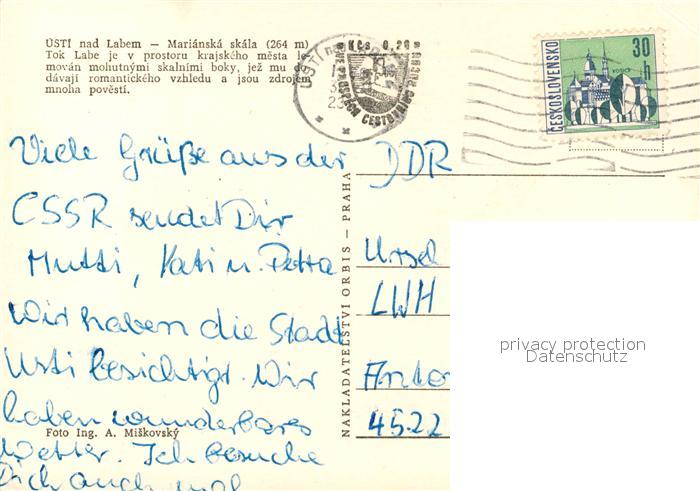 ÚSTÍ nad Labem — Mariánská skála (264 m)
Tok Labe je v prostoru krajského města le-
mován mohutnými skalními boky, jež mu do-
dávají romantického vzhledu a jsou zdrojem
mnoha pověstí.
Kčs 0,20
ÚSTÍ
VE PROSPĚCH CESTOVNÍHO
ČESKOSLOVENSKO
30 h
Viele Grüße aus der
CSSR sendet Dir
Mutti, Kati u. Petra
Wir haben die Stadt
Usti besichtigt. Wir
haben wunderbares
Wetter. Ich besuche
Dich auch mal
Foto Ing. A. Miškovský
NAKLADATELSTVÍ ORBIS — PRAHA
DDR
Ursel
LWH
4522
privacy protection
Datenschutz